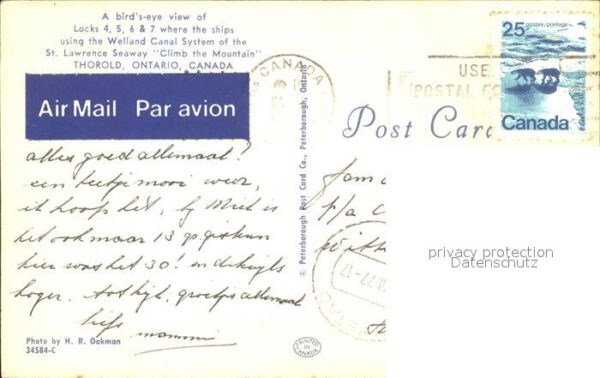 A bird's-eye view of
Locks 4, 5, 6 & 7 where the ships
using the Welland Canal System of the
St. Lawrence Seaway "Climb the Mountain"
THOROLD, ONTARIO, CANADA
Air Mail Par avion
alles goed allemaal?
een beetje mooi weer,
ik hoop het, by Miel is
het ook maar 13 gr. gisteren
hier was het 30! en
hoger. tot kijk, groetjes allemaal
liefs mammi
Photo by H. R. Oakman
34584-C
© Peterborough Post Card Co., Peterborough, Ontario
PRINTED IN CANADA
CANADA
USE
POSTAL CO
25 postes/postage
Canada
Post Car
fam
p/a
privacy protection
Datenschutz